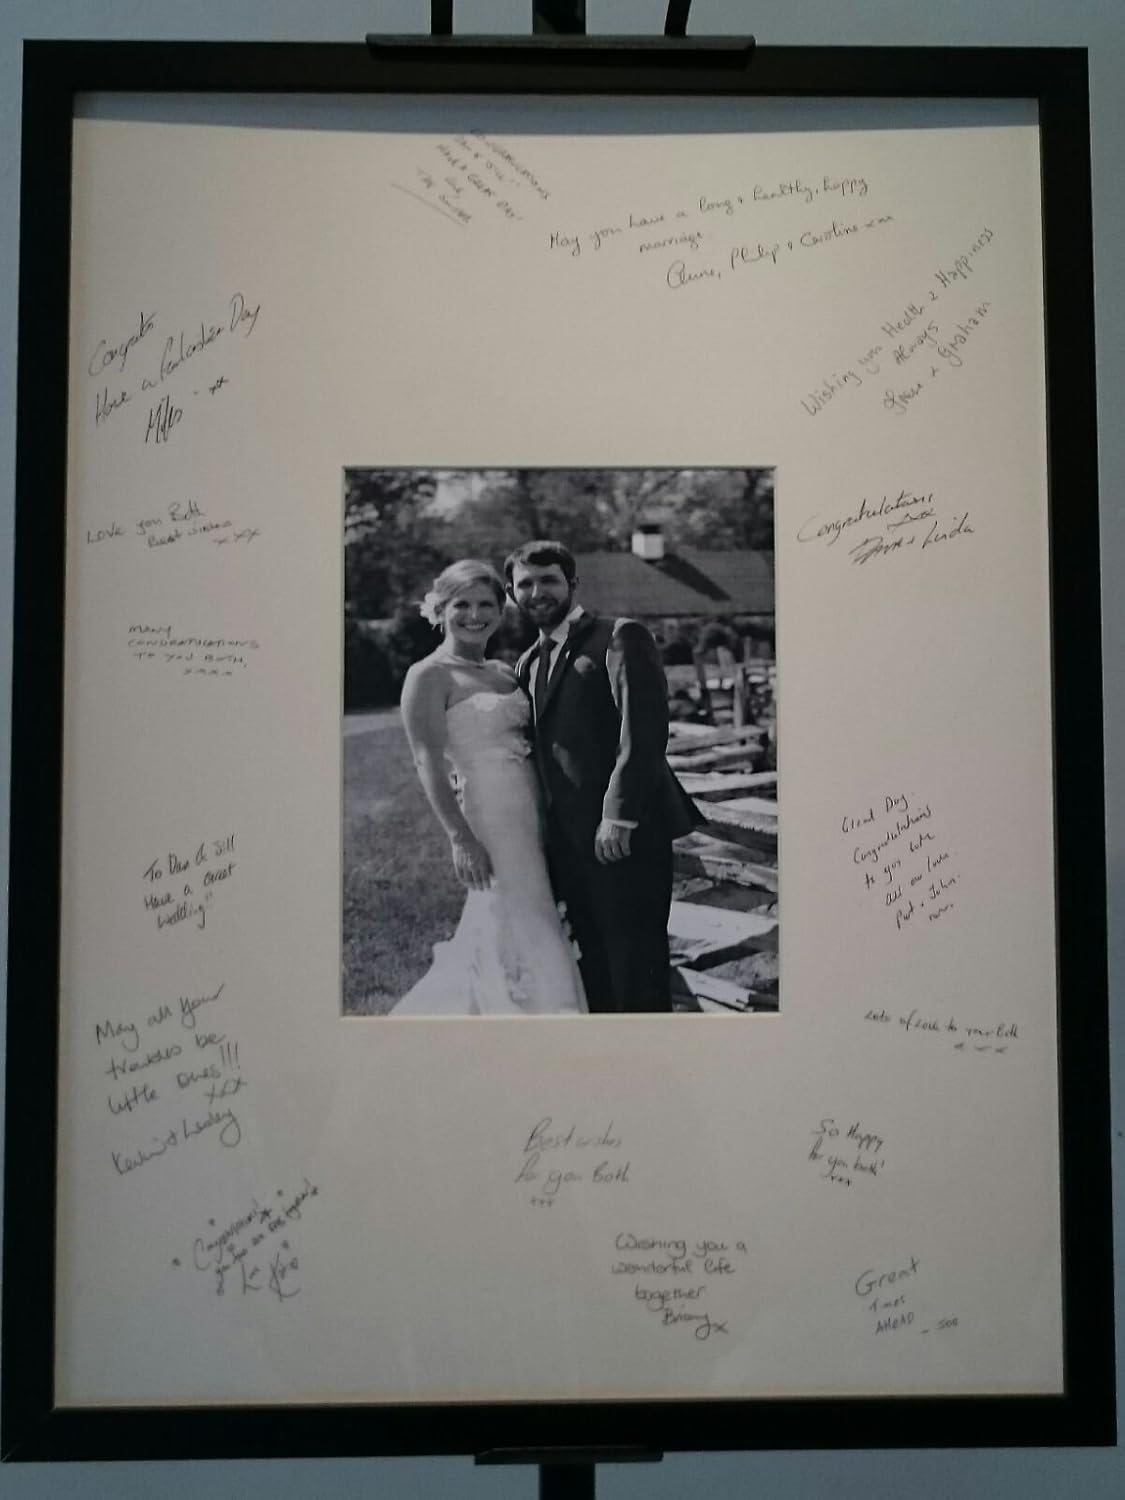 CONGRATULATIONS
DAN & JILL!!
HAVE A GREAT DAY
May you have a long & healthy, happy
marriage.
Anne, Philip & Caroline xxx
Wishing you Health & Happiness
Always
& Graham
Congrats
Have a Day
Congratulations
& Linda
Love you Both
Best wishes
xxx
MANY
CONGRATULATIONS
TO YOU BOTH,
xxxx
To Dan & Jill
Have a Great
Wedding"
Great Day.
Congratulations
to you both
all our love.
Pat & John.
May all your
troubles be
little ones!!!
xxx
Kevin & Lesley
Lots of Love to you Both
xxx
Best wishes
for you Both
xxx
So Happy
for you both!
xxx
Congratulations!
Wishing you a
wonderful life
together
Briony x
Great
Times
AHEAD